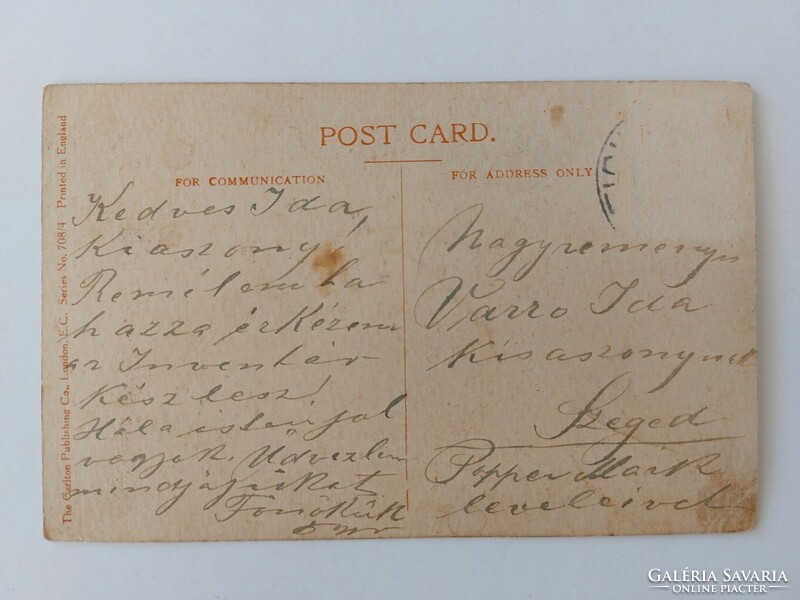 POST CARD.
FOR COMMUNICATION
FOR ADDRESS ONLY
The Carlton Publishing Co., London, E.C. Series No. 708/4 Printed in England
Kedves Ida,
Kiaszony!
Remélem ha
hazza érkézem
az Inventár
Készlesz!
Hála isten jol
vagyok. Üdvezlem
mindjájukat
Fonökük
Nagyremenyü
Varro Ida
Kisaszonynak
Szeged
Popper Márk
leveleivel
GALÉRIA SAVARIA
ONLINE PIACTÉR